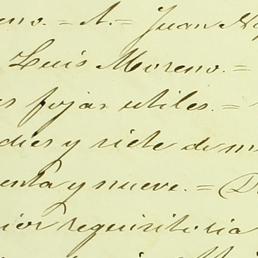 eno. = A. = Juan
Luis Moreno. =
fojas utiles. =
diez y siete de m
enta y nueve. =
ior requisitoria